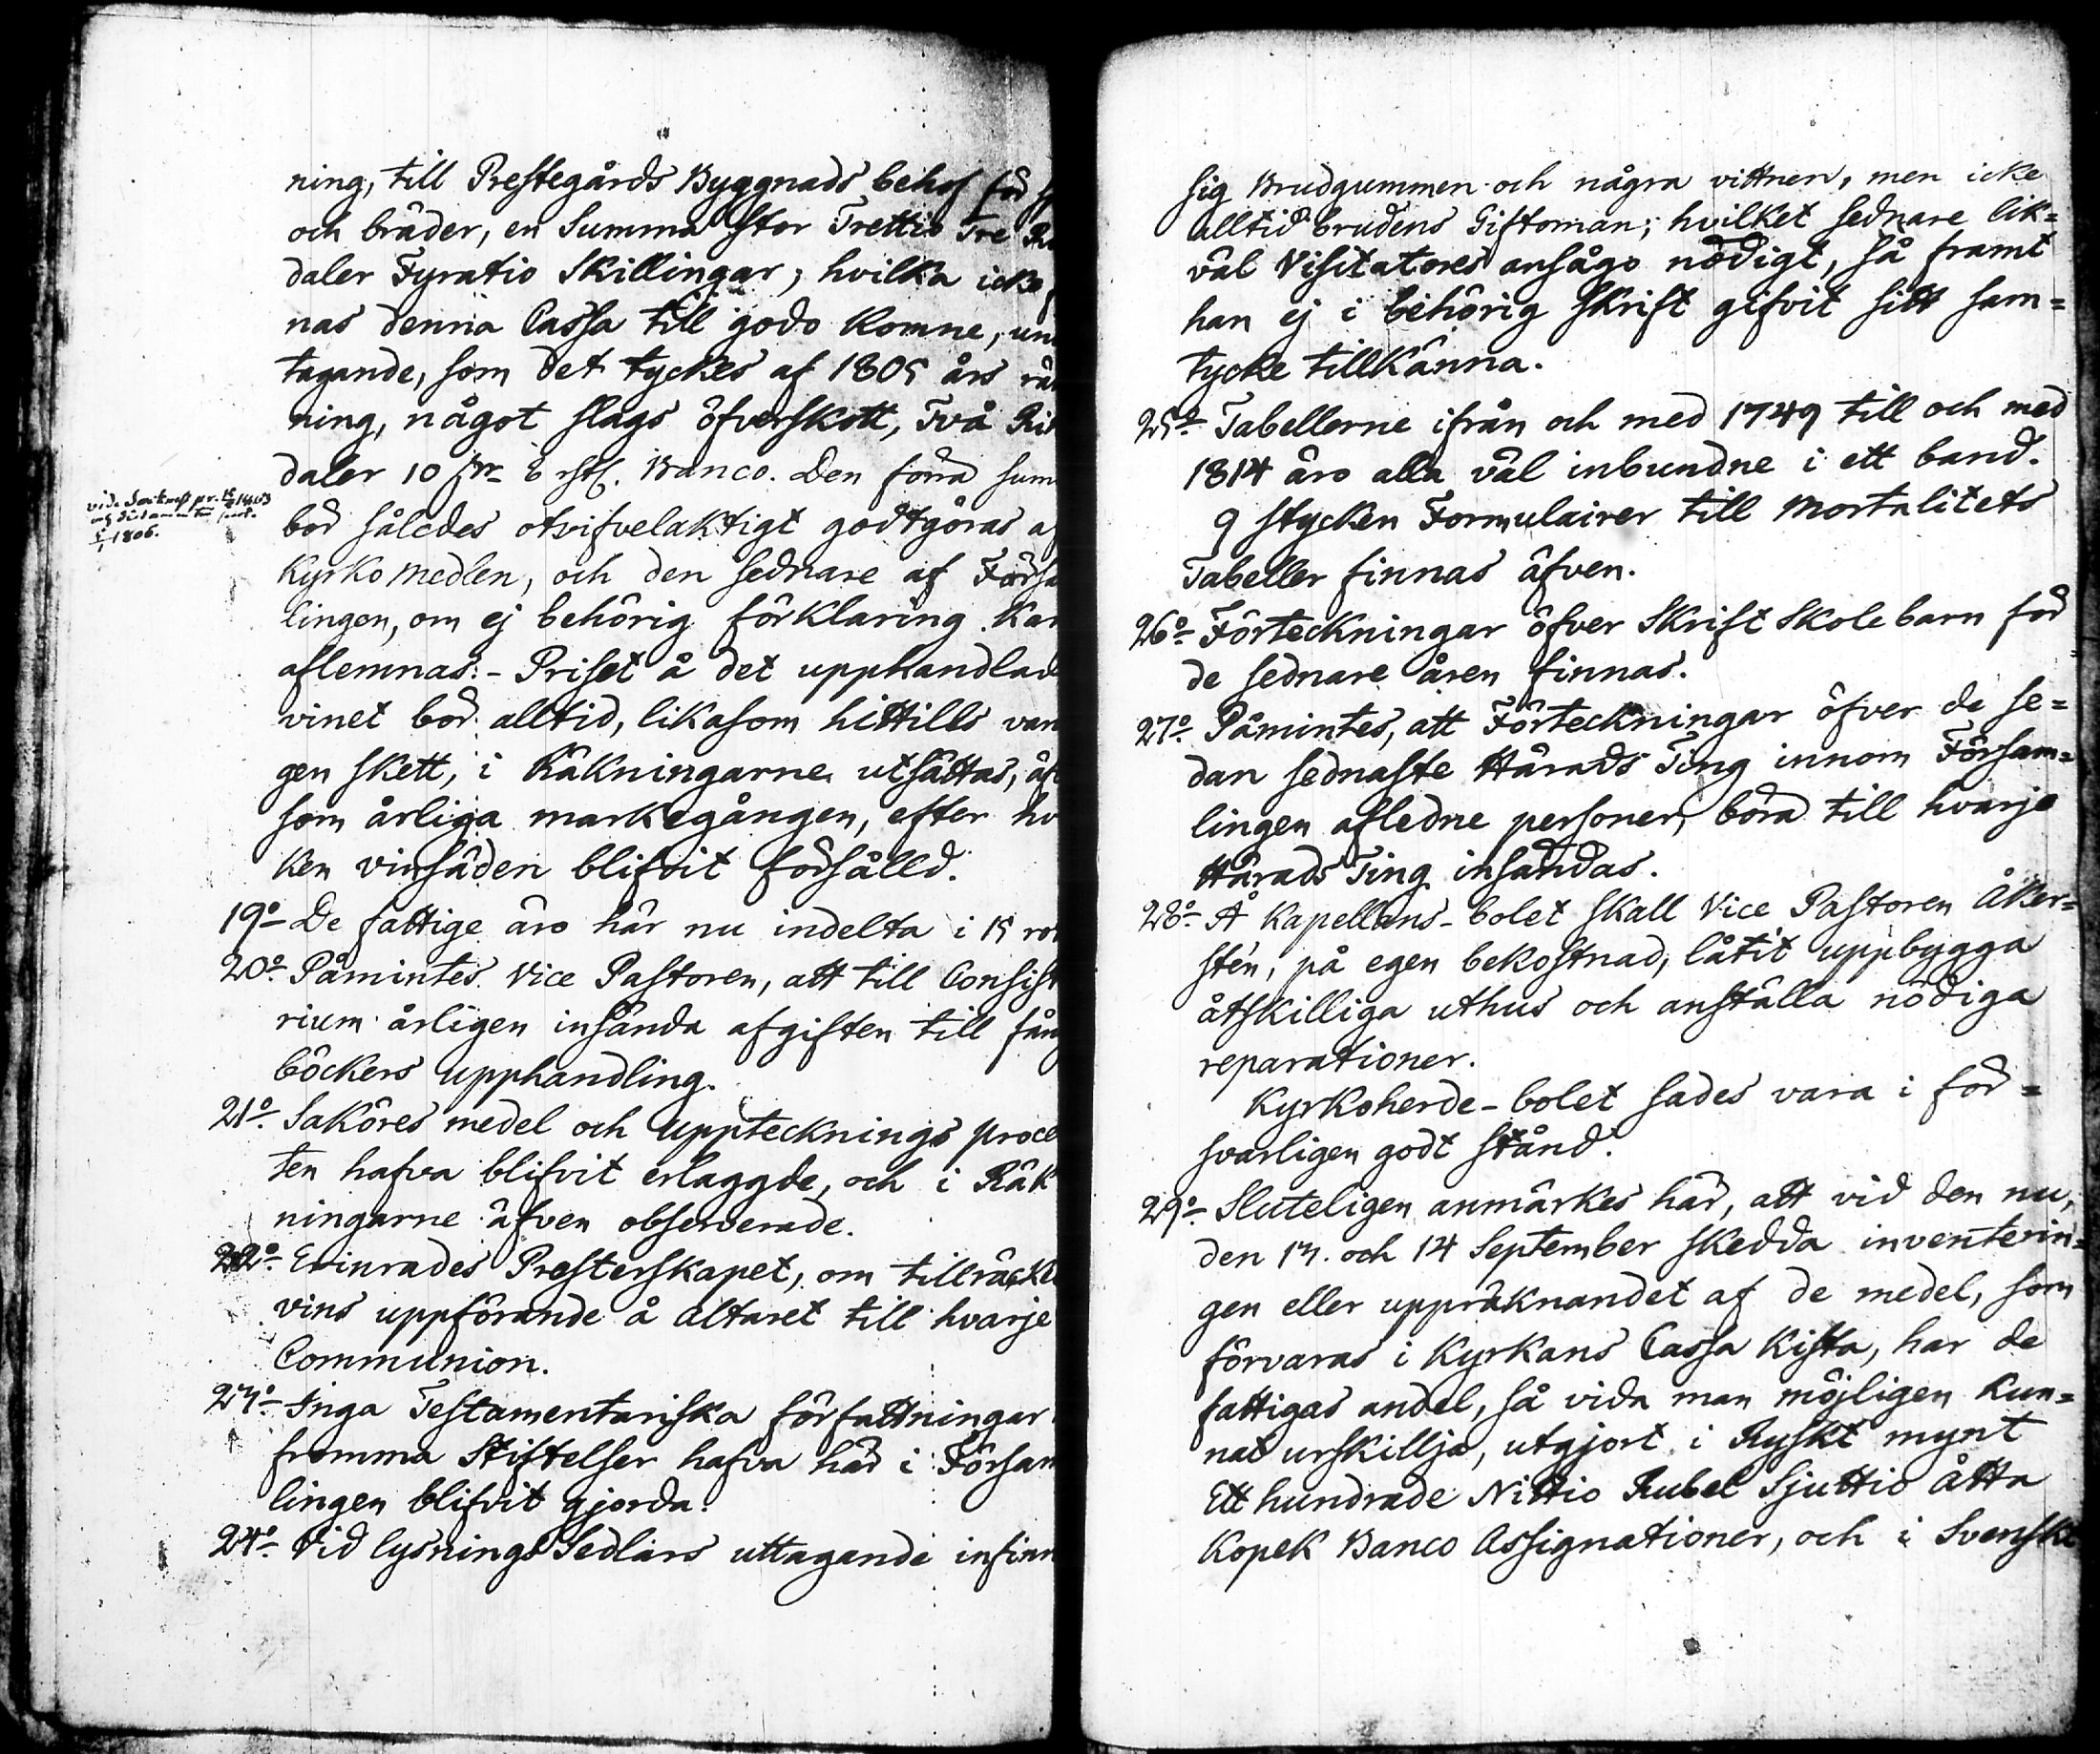 ning, till Prestegårds Byggnads behof för
och bräder, en Summa stor Trettio Tre
daler Fyratio Skillingar, hvilka icke
nas denna Cassa till godo komne, un
tagande, som det tyckes af 1805 års rä
ning, något slags öfverskott, Två Ri
daler 10 Banco. Den förra sum
bör således otvifvelaktigt godtgöras a
Kyrko medlen, och den sednare af Försa
lingen, om ej behörig förklaring kan
aflemnas. - Priset å det upphandlad
vinet bör alltid, likasom hittills van
gen skett, i Räkningarne utsättas, äf
som årliga markegången, efter hv
ken vinsäden blifvit försålld.
1806.
19o De fattige äro här nu indelta i 15 ro
20o Påmintes Vice Pastoren, att till Consist
rium årligen insända afgiften till fång
böckers upphandling.
21o Saköres medel och Upptecknings proce
ten hafva blifvit erlaggde, och i Räk
ningarne äfven observerade.
22o Erinrades Presterskapet, om tillräcke
vins uppförande å altaret till hvarje
Communion.
23o Inga Testamentariska författningar
fromma Stiftelser hafva här i Försam
lingen blifvit gjorda.
24o Vid lysnings Sedlars uttagande infinn
sig Brudgummen och några vittnen, men icke
alltid brudens Giftoman; hvilket sednare lik=
väl Visitatores ansågo nödigt, så framt
han ej i behörig skrift gifvit sitt sam=
tycke tillkänna.
25o Tabellerne ifrån och med 1749 till och med
1814 äro alla väl inbundne i ett band.
9 stycken Formulairer till Mortalitets
Tabeller finnas äfven.
26o Förteckningar öfver Skrift Skole barn för
de sednare åren finnas.
27o Påmintes, att Förteckningar öfver de se=
dan sednaste Härads Ting innom Försam=
lingen afledne personer, böra till hvarje
Härads Ting insändas.
28o Å Kapellans-bolet skall Vice Pastoren Åker=
stén, på egen bekostnad, låtit uppbygga
åtskilliga uthus och anställa nödiga
reparationer.
Kyrkoherde-bolet sades vara i för=
svarligen godt stånd.
29o Sluteligen anmärkes här, att vid den nu,
den 13. och 14 September skedda inventerin=
gen eller uppräknandet af de medel, som
förvaras i Kyrkans Cassa Kista, har de
fattigas andel, så vida man möjligen kun=
nat urskillja, utgjort i Ryskt mynt
Ett hundrade Nittio Rubel Sjuttio åtta
Kopek Banco Assignationer, och i Svenska